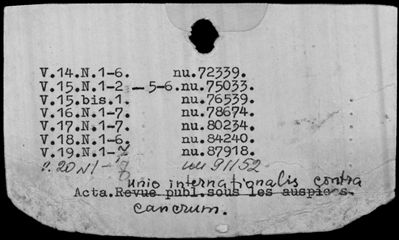 V.14.N.1-6. nu.72339.
V.15.N.1-2 — 5-6.nu.75033.
V.15.bis.1. nu.76539.
V.16.N.1-7. nu.78674.
V.17.N.1-7. nu.80234.
V.18.N.1-6. nu.84240.
V.19.N.1-7 nu.87918.
v. 20 N 1- nu 91152
Unio internationalis contra
Acta.Revue publ.sous les auspices
cancrum.